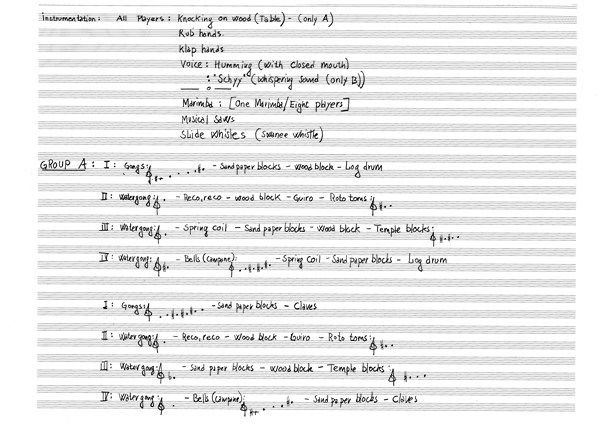 instrumentation: All Players: Knocking on wood (Table) - (only A)
Rub hands.
Klap hands
Voice: Humming (with closed mouth)
: "Schyy" (whispering sound (only B))
Marimba: [One Marimba/Eight players]
Musical Saws
Slide Whisles (swanee whistle)
GROUP A: I: Gongs: - Sand paper blocks - Wood block - Log drum
II: Watergong: - Reco,reco - Wood block - Guiro - Roto toms:
III: Watergong: - Spring coil - Sand paper blocks - Wood block - Temple blocks:
IV: Watergong: - Bells (Campane): - Spring coil - Sand paper blocks - Log drum
I: Gongs: - Sand paper blocks - Claves
II: Water gong: - Reco,reco - Wood block - Guiro - Roto toms:
III: Water gong: - Sand paper blocks - Wood block - Temple blocks:
IV: Water gong: - Bells (Campane): - Sand paper blocks - Claves